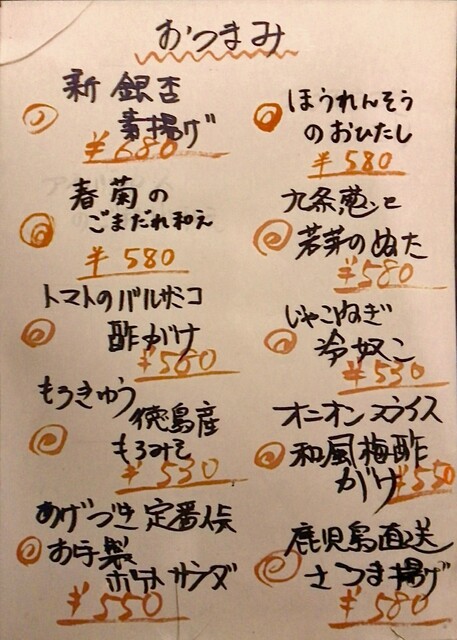 おつまみ
新銀杏
素揚げ
¥680
春菊の
ごまだれ和え
¥580
トマトのバルサミコ
酢がけ
¥560
もろきゅう
徳島産
もろみそ
¥530
あげづき定番
お手製
ポテトサラダ
¥550
ほうれんそう
のおひたし
¥580
九条葱と
若芽のぬた
¥580
じゃこねぎ
冷奴
¥530
オニオンスライス
和風梅酢
がけ
¥550
鹿児島直送
さつま揚げ
¥580